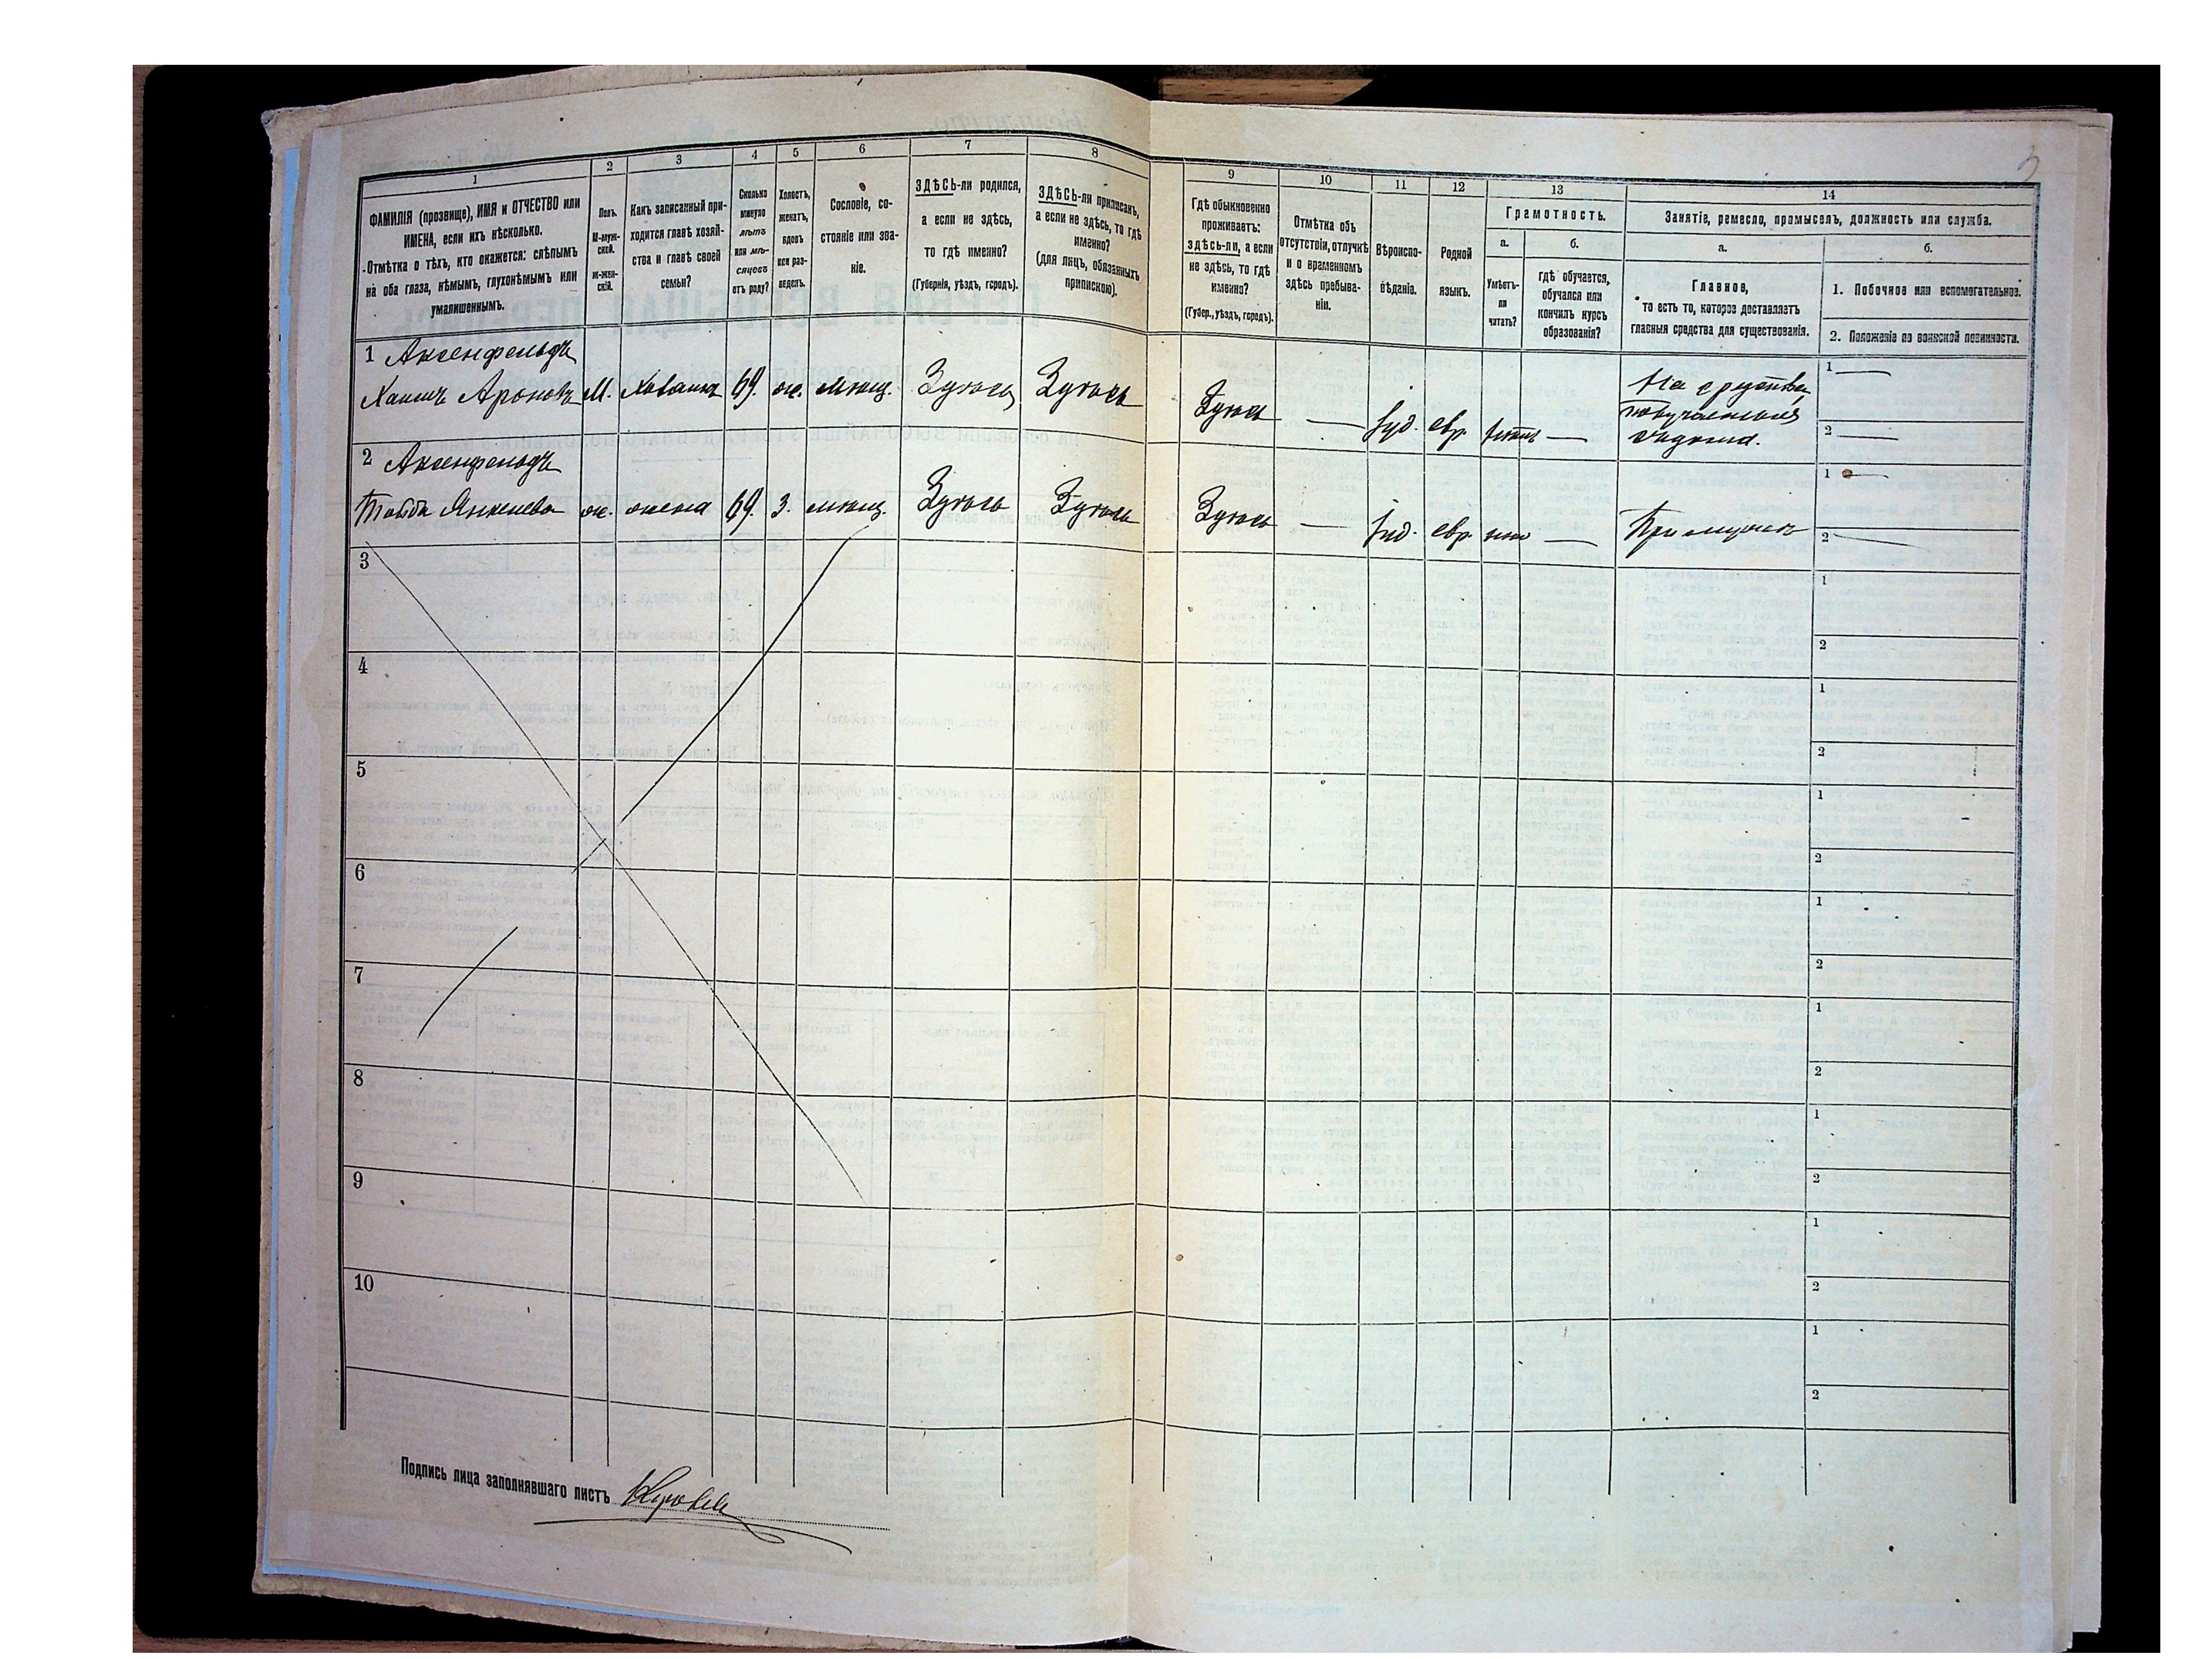 1
2
3
4
5
6
7
8
ФАМИЛІЯ (прозвище), ИМЯ и ОТЧЕСТВО или
ИМЕНА, если ихъ нѣсколько.
Отмѣтка о тѣхъ, кто окажется: слѣпымъ
на оба глаза, нѣмымъ, глухонѣмымъ или
умалишеннымъ.
Полъ.
М-муж-
ской.
Ж-жен-
скій.
Какъ записанный при-
ходится главѣ хозяй-
ства и главѣ своей
семьи?
Сколько
минуло
лѣтъ
или мѣ-
сяцевъ
отъ роду?
Холостъ,
женатъ,
вдовъ
или раз-
веденъ.
Сословіе, со-
стояніе или зва-
ніе.
ЗДѢСЬ-ли родился,
а если не здѣсь,
то гдѣ именно?
(Губернія, уѣздъ, городъ).
ЗДѢСЬ-ли приписанъ,
а если не здѣсь, то гдѣ
именно?
(для лицъ, обязанныхъ
припискою).
9
10
11
12
13
14
Гдѣ обыкновенно
проживаетъ:
здѣсь-ли, а если
не здѣсь, то гдѣ
именно?
(Губер., уѣздъ, городъ).
Отмѣтка объ
отсутствіи, отлучкѣ
и о временномъ
здѣсь пребыва-
ніи.
Вѣроиспо-
вѣданіе.
Родной
языкъ.
Грамотность.
а.
б.
Умѣетъ-
ли
читать?
гдѣ обучается,
обучался или
кончилъ курсъ
образованія?
Занятіе, ремесло, промыселъ, должность или служба.
а.
б.
Главное,
то есть то, которое доставляетъ
главныя средства для существованія.
1. Побочное или вспомогательное.
2. Положеніе по воинской повинности.
1 Аксенфельдъ
Хаимъ Ароновъ М. хозяинъ 69. ж. мѣщ. Здѣсь Здѣсь Здѣсь — Іуд. евр. —
На средства
1 —
2 —
2 Аксенфельдъ
Янкелева ж. жена 69. З. мѣщ. Здѣсь Здѣсь Здѣсь — Іуд. евр. нѣтъ —
При мужѣ
1 —
2 —
3
1
2
4
1
2
5
1
2
6
1
2
7
1
2
8
1
2
9
1
2
10
1
2
Подпись лица заполнявшаго листъ